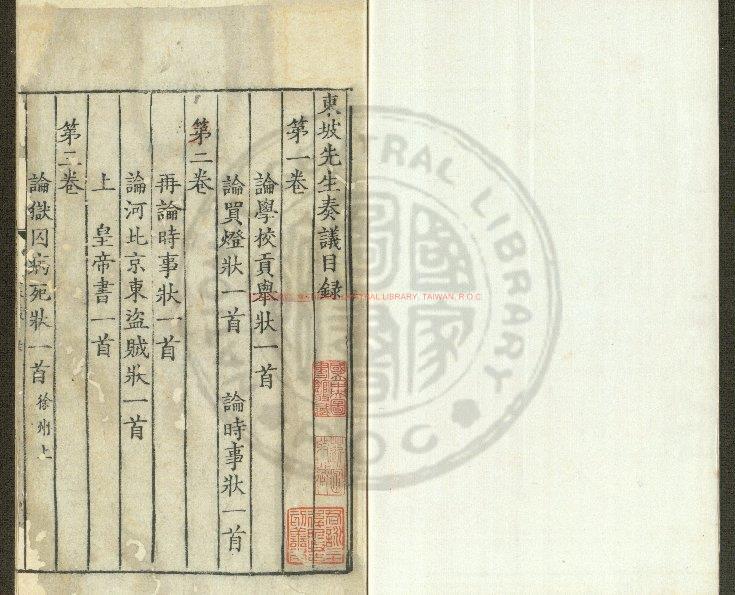 東坡先生奏議目録
第一卷
論學校貢舉狀一首
論買燈狀一首 論時事狀一首
第二卷
再論時事狀一首
論河北京東盜賊狀一首
上 皇帝書一首
第三卷
論獄囚病死狀一首 徐州上
CENTRAL LIBRARY, TAIWAN, R.O.C